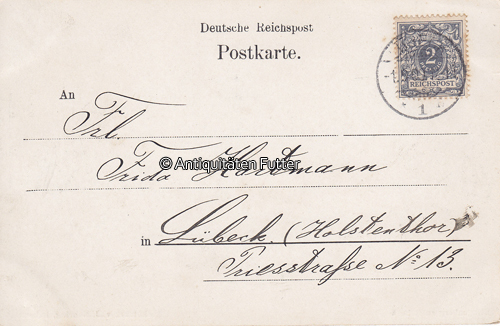 Deutsche Reichspost
Postkarte.
2
REICHSPOST
1
An
Frl.
Frida Hartmann
© Antiquitäten Futter
in Lübeck. (Holstenthor)
Priesstraße No 13.